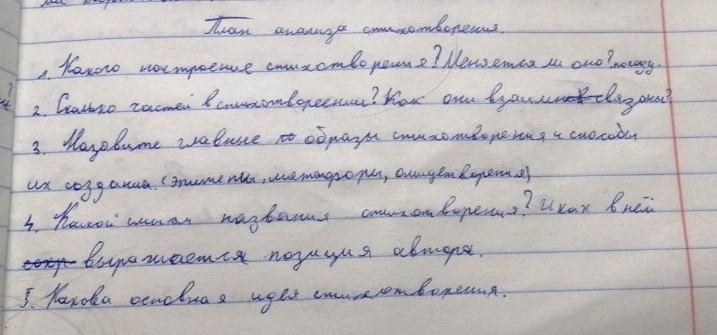 План анализа стихотворения.
1. Какого настроение стихотворения? Меняется ли оно?
2. Сколько частей в стихотворении? Как они взаимосвязаны?
3. Назовите главные образы стихотворения и способы
их создания. (Эпитеты, метафоры, олицетворения)
4. Какой смысл названия стихотворения? И как в ней
выражается позиция автора.
5. Какова основная идея стихотворения.